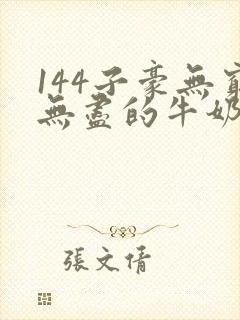 144子豪無窮
無盡的牛奶
張文倩